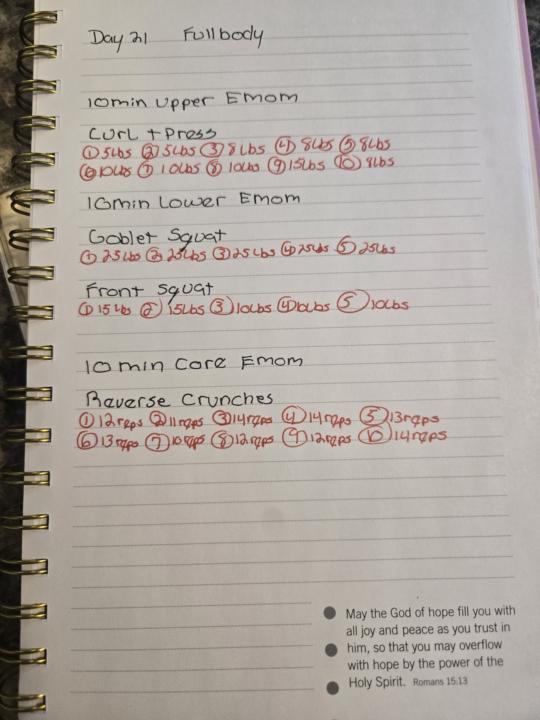 Day 21 Full body
10min Upper Emom
Curl + Press
① 5lbs ② 5lbs ③ 8lbs ④ 8lbs ⑤ 8lbs
⑥ 10lbs ⑦ 10lbs ⑧ 10lbs ⑨ 15lbs ⑩ 8lbs
10min Lower Emom
Goblet Squat
① 25lbs ② 25lbs ③ 25lbs ④ 25lbs ⑤ 25lbs
Front Squat
① 15lbs ② 15lbs ③ 10lbs ④ 10lbs ⑤ 10lbs
10 min Core Emom
Reverse Crunches
① 12reps ② 11reps ③ 14reps ④ 14reps ⑤ 13reps
⑥ 13reps ⑦ 10reps ⑧ 12reps ⑨ 12reps ⑩ 14reps
May the God of hope fill you with
all joy and peace as you trust in
him, so that you may overflow
with hope by the power of the
Holy Spirit. Romans 15:13